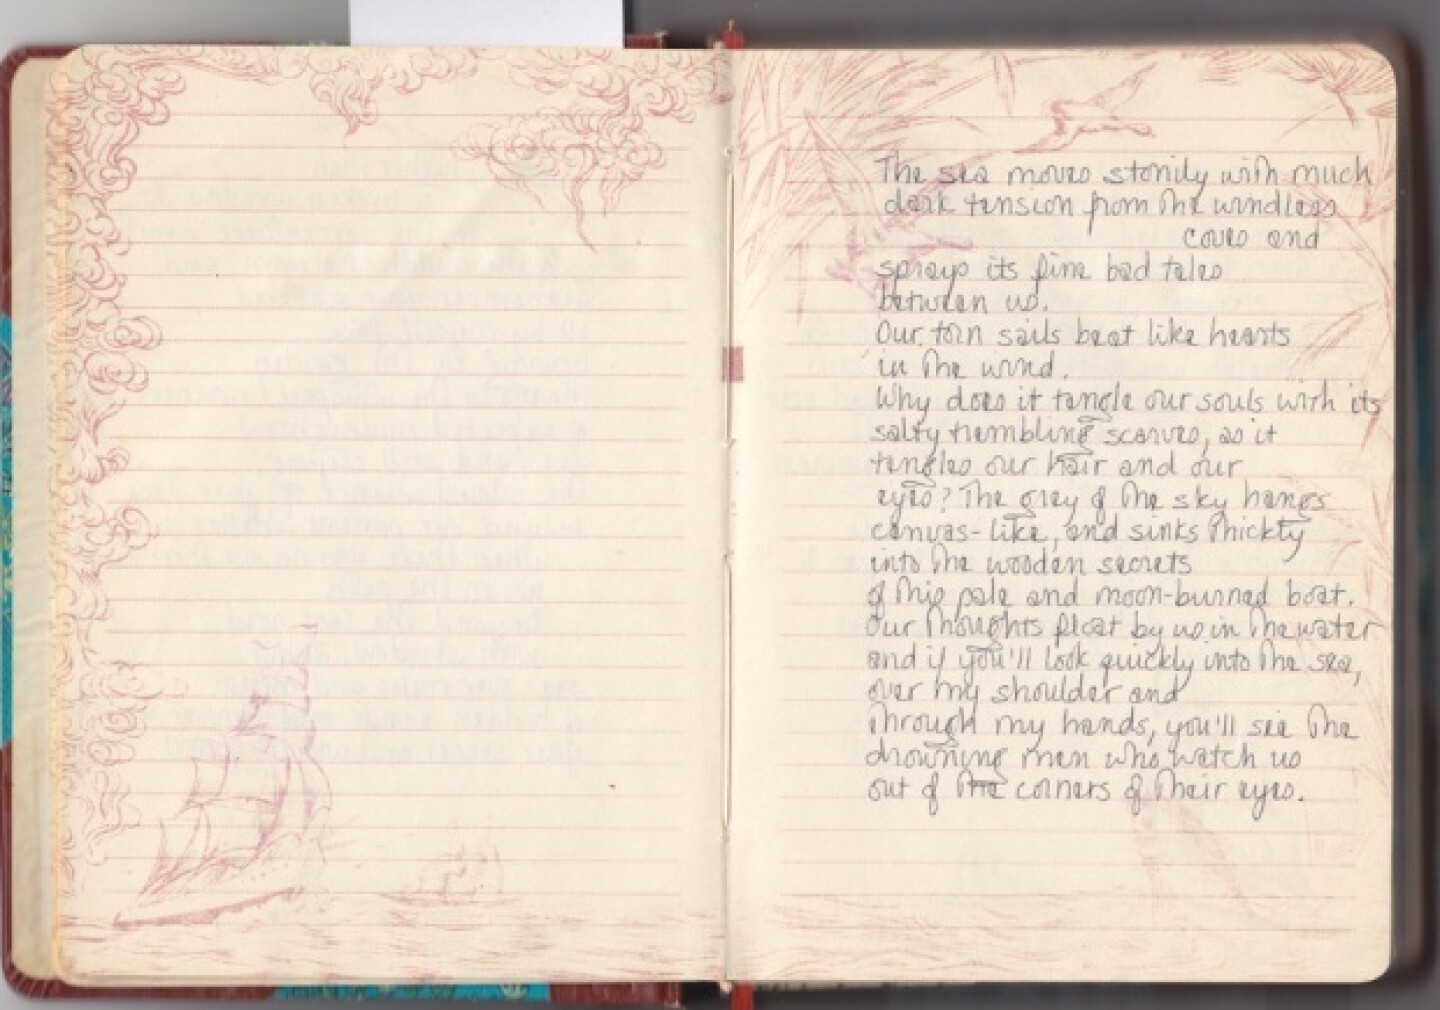 The sea moves stonily with much
dark tension from the windless
coves and
sprays its fine bad tales
between us.
Our torn sails beat like hearts
in the wind.
Why does it tangle our souls with its
salty trembling scarves, as it
tangles our hair and our
eyes? The grey of the sky hangs
canvas-like, and sinks thickly
into the wooden secrets
of this pale and moon-burned boat.
Our thoughts float by us in the water
and if you'll look quickly into the sea,
over my shoulder and
through my hands, you'll see the
drowning men who watch us
out of the corners of their eyes.